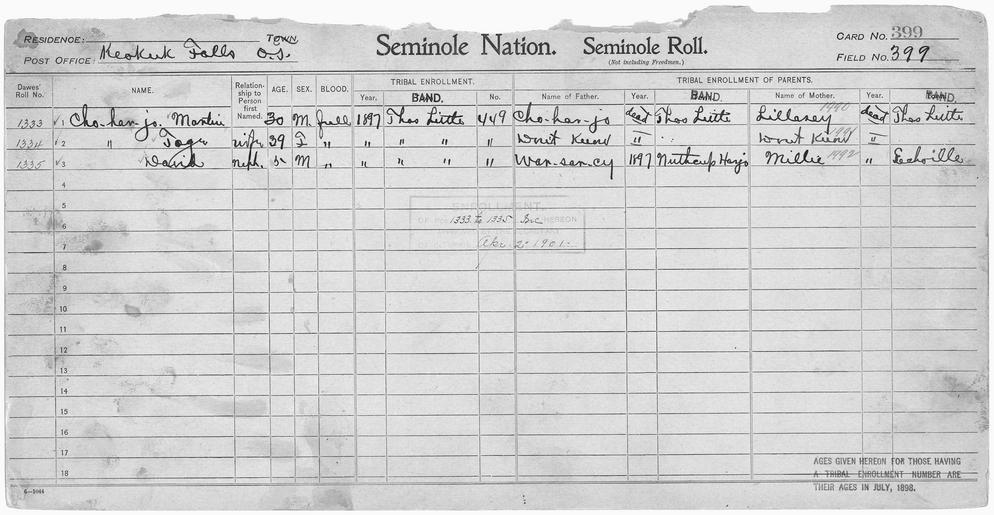 RESIDENCE: TOWN.
POST OFFICE: Keokuk Falls O.T.
Seminole Nation. Seminole Roll.
(Not including Freedmen.)
CARD NO. 399
FIELD NO. 399
Dawes' Roll No. NAME. Relationship to Person first Named. AGE. SEX. BLOOD. TRIBAL ENROLLMENT. TRIBAL ENROLLMENT OF PARENTS.
Year. BAND. No. Name of Father. Year. BAND. Name of Mother. Year. BAND.
1333 1 Cho-har-jo. Martin 30 M full 1897 Thos Little 449 Cho-har-jo dead Thos Little Lillasey 1990 dead Thos Little
1334 2 " wife 39 F " " " " " Don't Know " Don't Know "
1335 3 David neph. 5 M " " " " " 1897 Nuthcup Harjo Millie 1992 "
4
5
ENROLLMENT
OF NOS. 1333 to 1335 Inc HEREON
6
Apr 2 1901
7
8
9
10
11
12
13
14
15
16
17
18
AGES GIVEN HEREON FOR THOSE HAVING
A TRIBAL ENROLLMENT NUMBER ARE
THEIR AGES IN JULY, 1898.